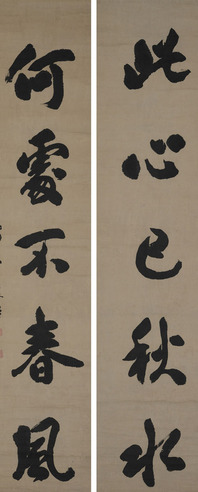 此心已秋水
何處不春風